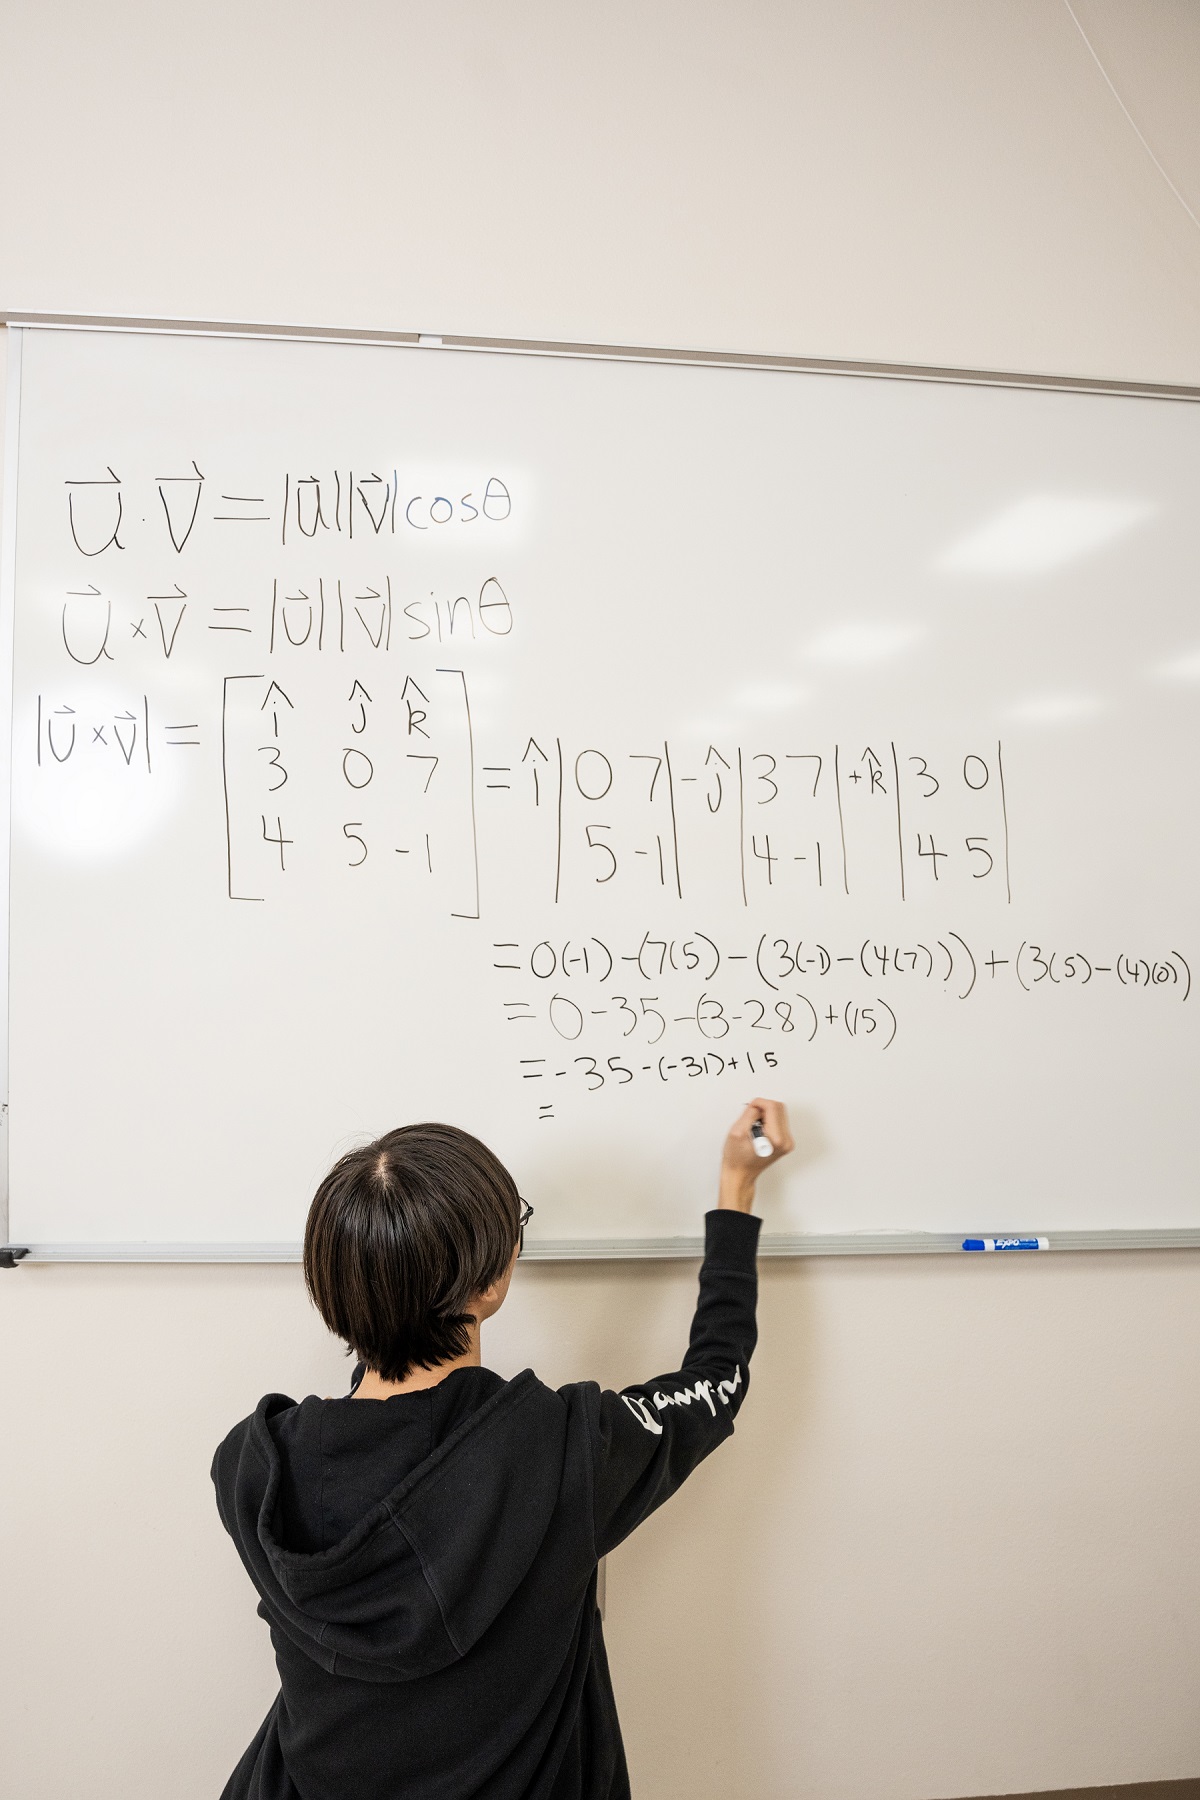 u⃗ · v⃗ = |u⃗||v⃗|cosθ
u⃗ × v⃗ = |u⃗||v⃗|sinθ
|u⃗ × v⃗| = [ î ĵ k̂
3 0 7 = î | 0 7 | - ĵ | 3 7 | + k̂ | 3 0 |
4 5 -1 ] | 5 -1 | | 4 -1 | | 4 5 |
= 0(-1) - (7(5) - (3(-1) - (4(7))) + (3(5) - (4)(0))
= 0 - 35 - (-3 - 28) + (15)
= -35 - (-31) + 15
=
EXPO
Champion